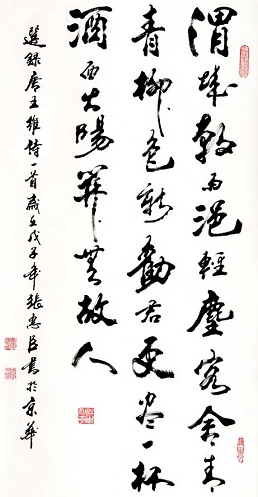 渭城朝雨浥輕塵客舍青
青柳色新勸君更尽一杯
酒西出陽關無故人
選錄唐王維詩一首歲在戊子年張惠臣書於京華